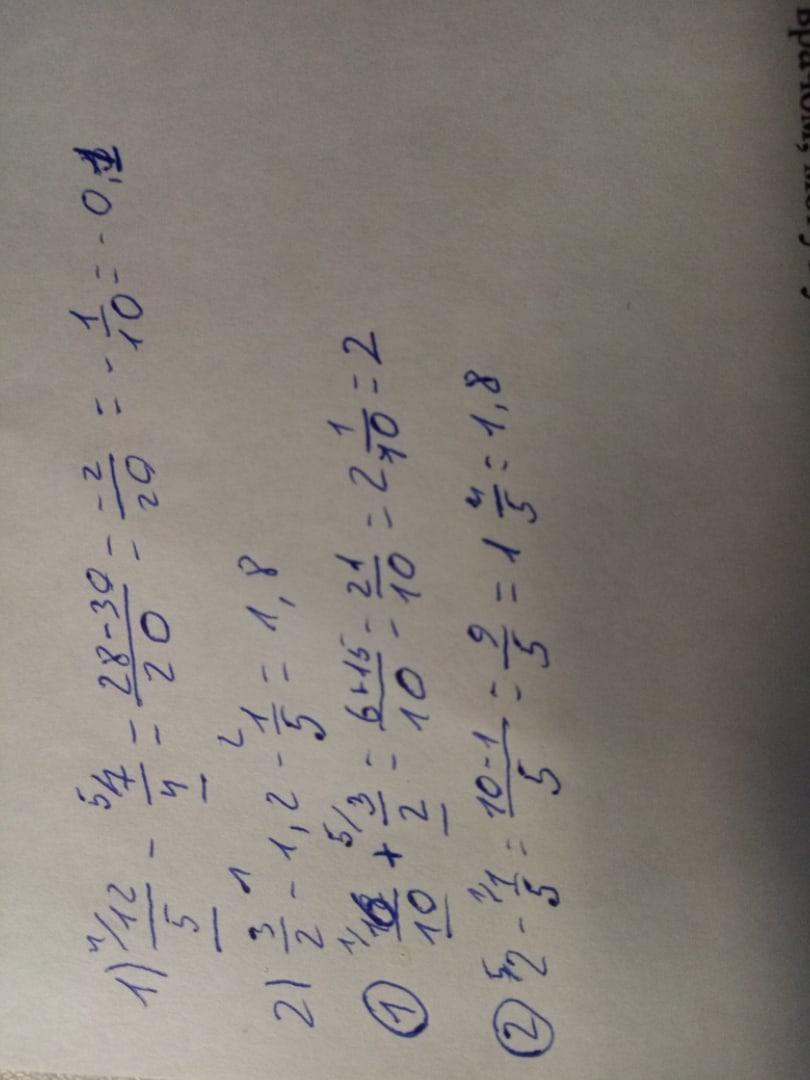 1) 4/12/5 - 5/7/4 = 28-30/20 = -2/20 = - 1/10 = - 0,1
2) 3/2 -¹ 1,2 -² 1/5 = 1,8
① 10 + 5/3/2 = 6+15/10 = 21/10 = 2 1/10 = 2
② 5/2 - 1/1/5 = 10-1/5 = 9/5 = 1 4/5 = 1,8